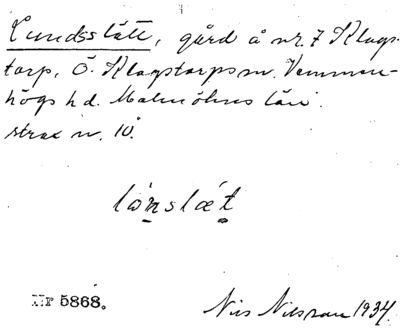 Lundsslätt, gård å nr. 7 Klags-
torp, Ö. Klagstorps sn. Vemmen-
högs hd. Malmöhus län.
strax n. 10.
lònslǽt
Nr 5868.
Nils Nilsson 1934.